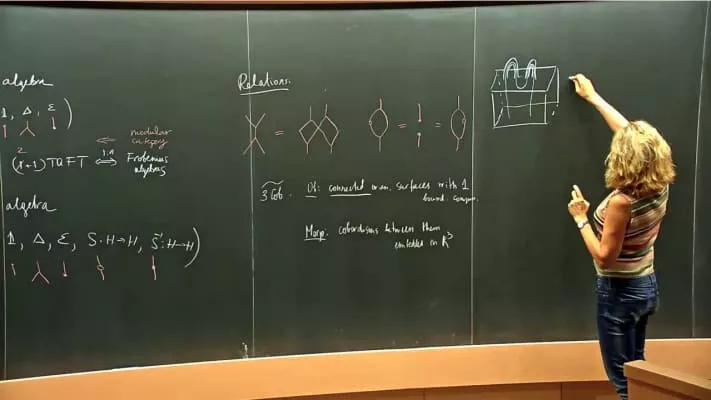 algebra
1, Δ, ε )
modular category
(2+1) TQFT 1:1 ⟺ Frobenius algebras
algebra
1, Δ, ε, S: H→H, S⁻¹: H→H )
Relations:
= = =
3Cob. Ob: connected surfaces with 1
bound. compon.
Morp: cobordisms between them
embedded in R³